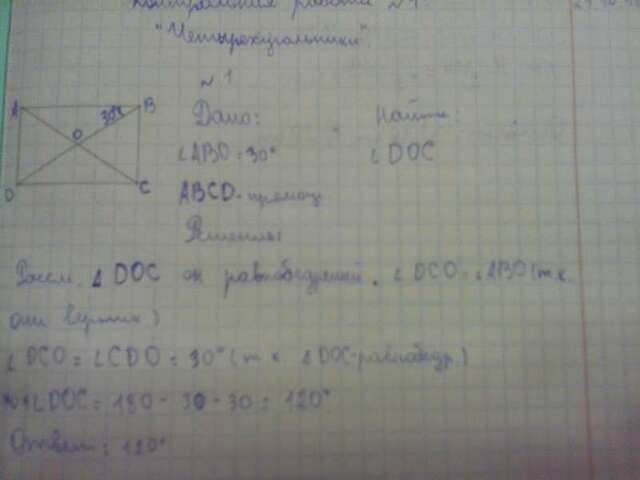 Контрольная работа №1.
"Четырехугольники".
№1
A B 30° O D C
Дано: Найти:
∠ABO = 30° ∠DOC
ABCD - прямоуг
Решение:
Рассм. Δ DOC он равнобедренный. ∠DCO = ∠ABO (т к
они вертик)
∠DCO = ∠CDO = 30° (т к. Δ DOC-равнобедр.)
∠DOC = 180 - 30 - 30 = 120°
Ответ: 120°